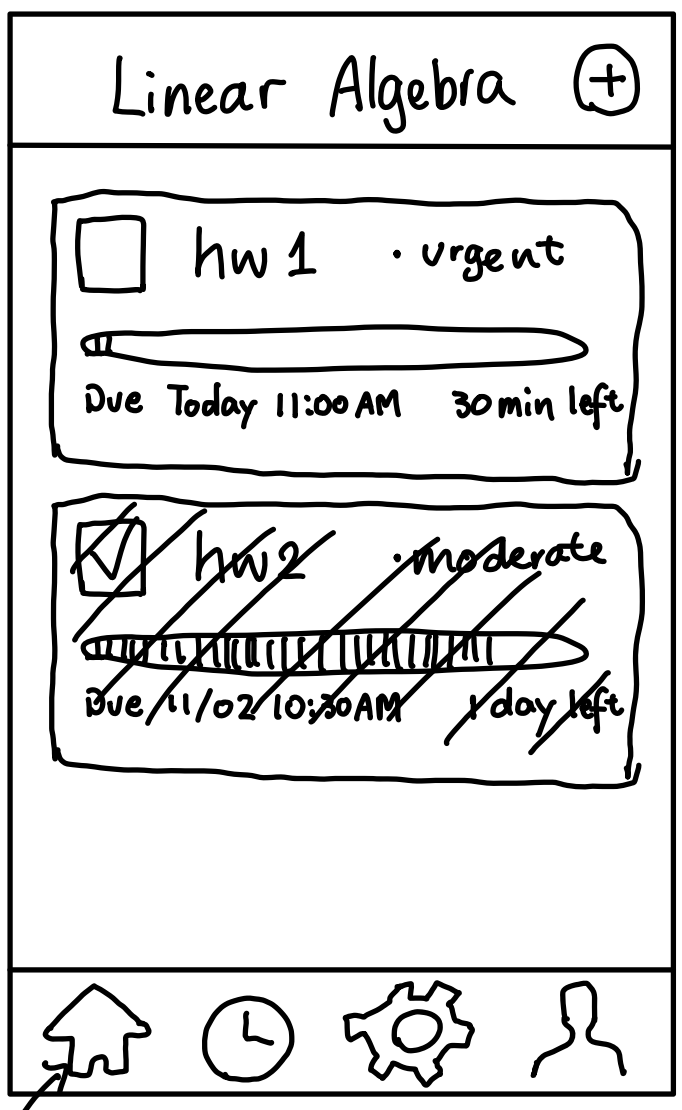 Linear Algebra +
hw 1 · urgent
Due Today 11:00 AM 30 min left
hw 2 · moderate
Due 11/02 10:30 AM 1 day left